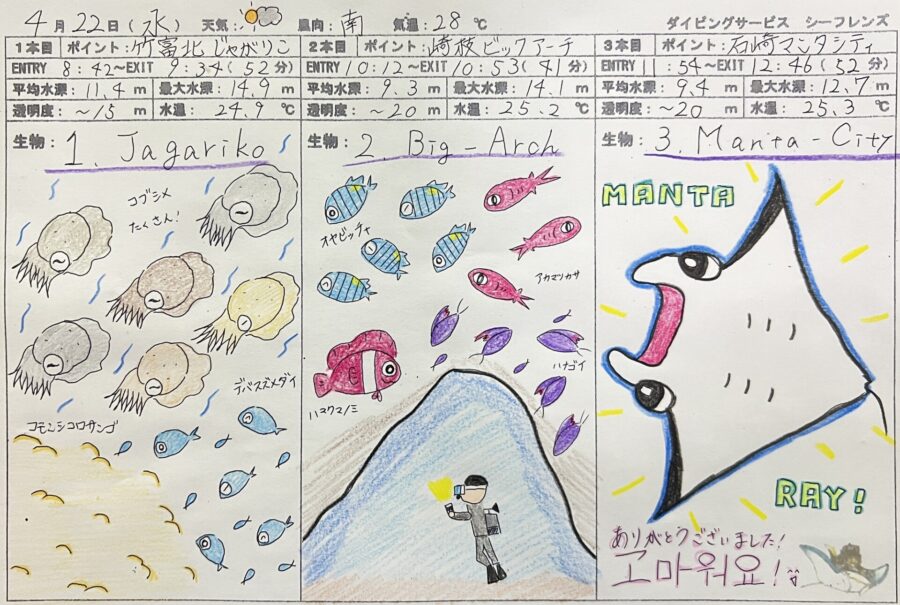 4月22日(水) 天気: 風向:南 気温:28℃ ダイビングサービス シーフレンズ
1本目 ポイント:竹富北じゃがりこ
ENTRY 8:42〜EXIT 9:34(52分)
平均水深:11.4m 最大水深:14.9m
透明度:〜15m 水温:24.9℃
生物: 1. Jagariko
コブシメ
たくさん!
デバスズメダイ
コモンシコロサンゴ
2本目 ポイント:崎枝ビックアーチ
ENTRY 10:12〜EXIT 10:53(41分)
平均水深:9.3m 最大水深:14.1m
透明度:〜20m 水温:25.2℃
生物: 2. Big-Arch
オヤビッチャ
アカマツカサ
ハナゴイ
ハマクマノミ
3本目 ポイント:石崎マンタシティ
ENTRY 11:54〜EXIT 12:46(52分)
平均水深:9.4m 最大水深:12.7m
透明度:〜20m 水温:25.3℃
生物: 3. Manta-City
MANTA
RAY!
ありがとうございました!
고마워요!